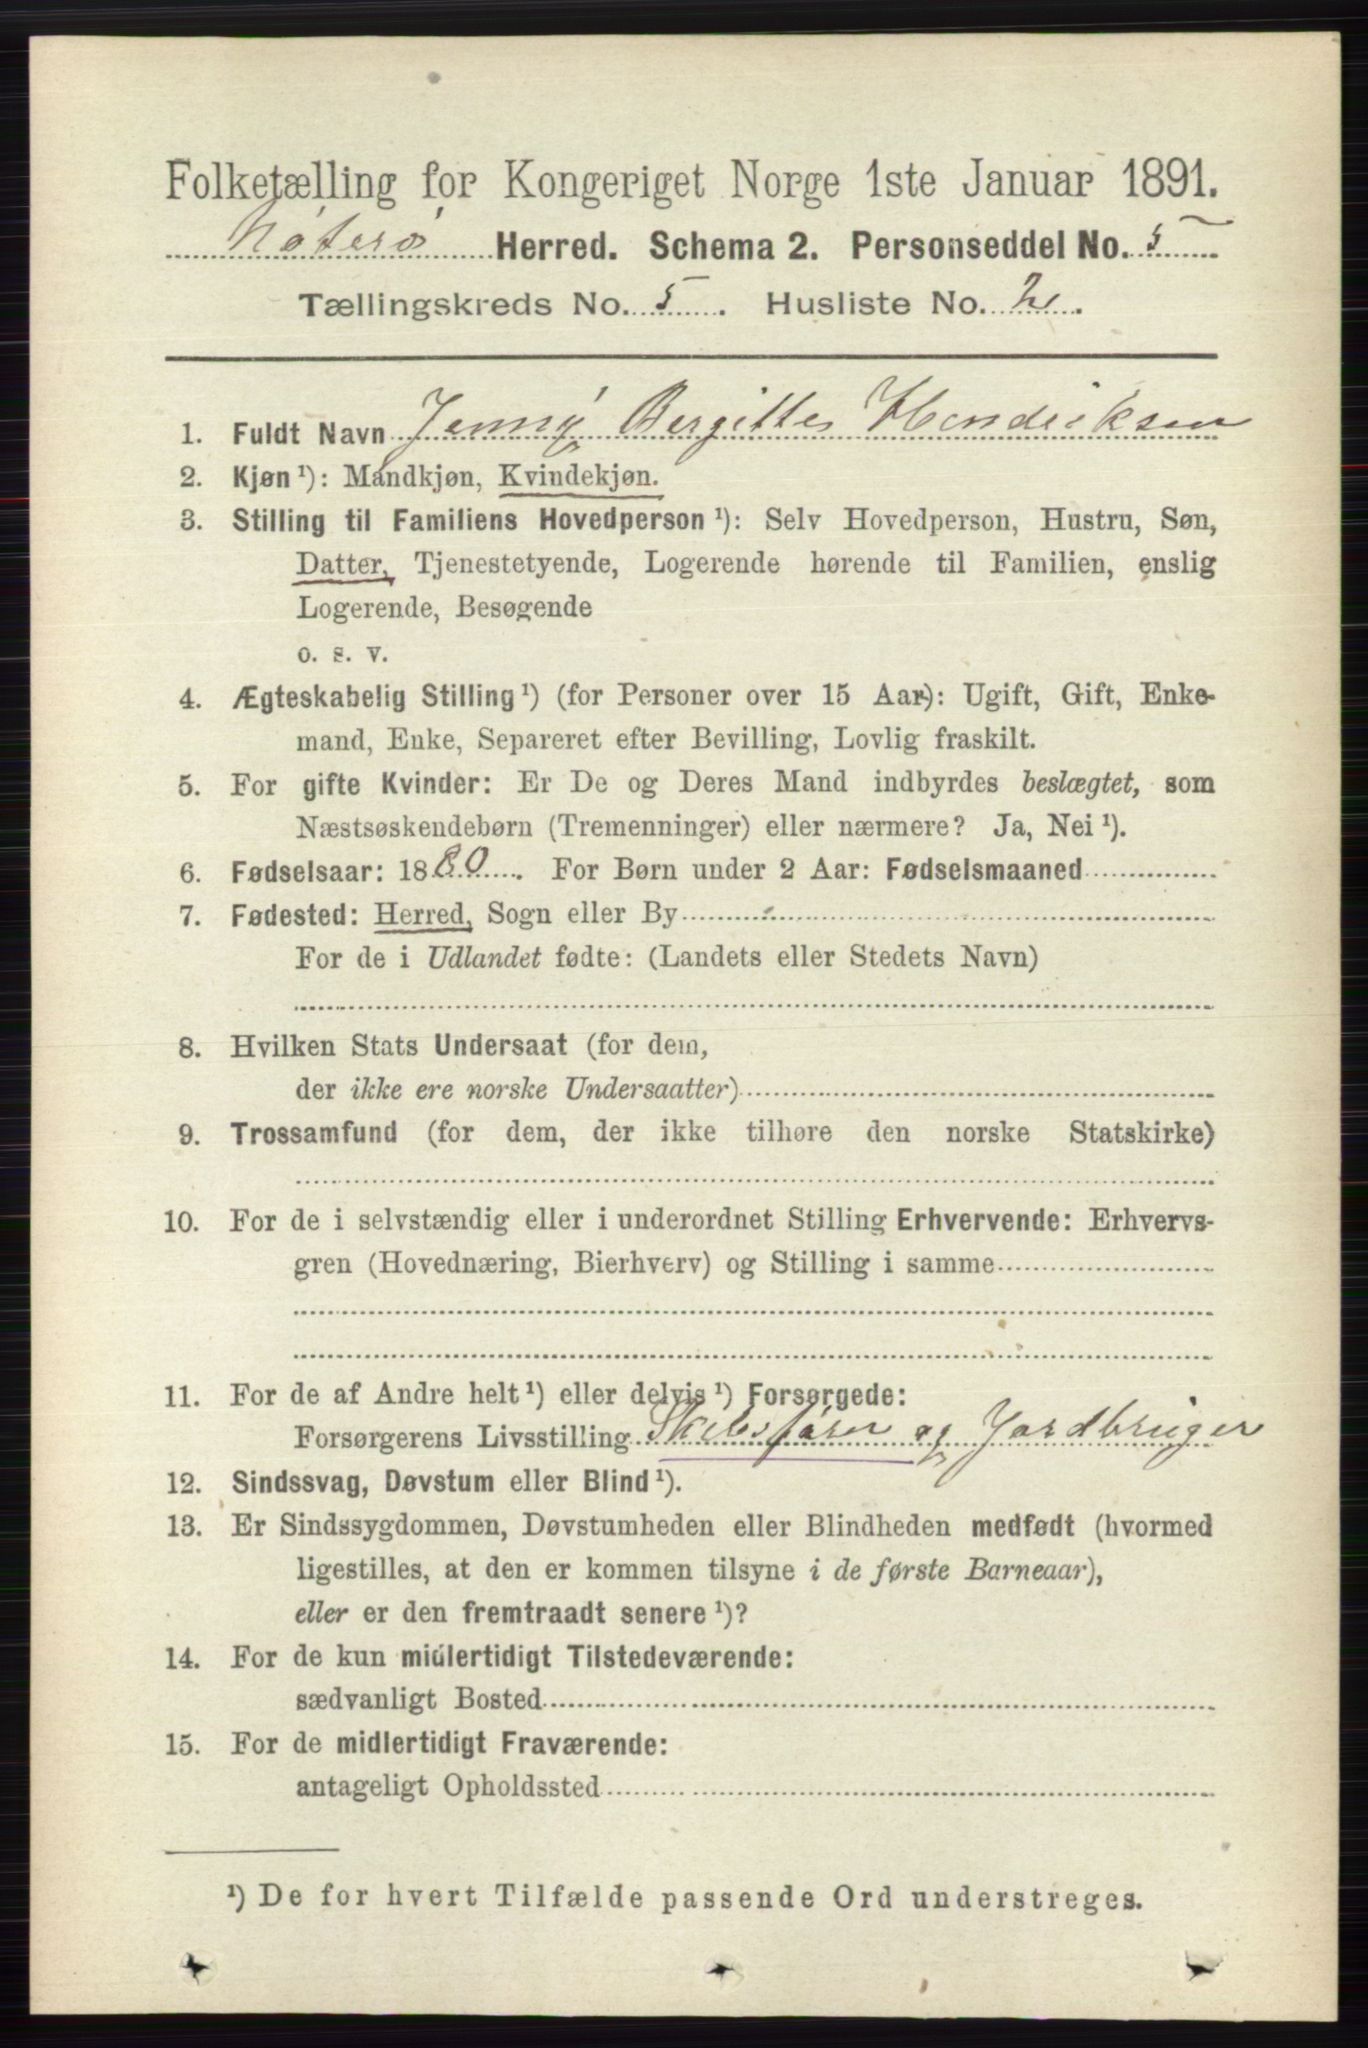 Folketælling for Kongeriget Norge 1ste Januar 1891.
Nøterø Herred. Schema 2. Personseddel No. 5
Tællingskreds No. 5. Husliste No. 2.
1. Fuldt Navn Jenny Bergitte Hendriksen
2. Kjøn ¹): Mandkjøn, Kvindekjøn.
3. Stilling til Familiens Hovedperson ¹): Selv Hovedperson, Hustru, Søn,
Datter, Tjenestetyende, Logerende hørende til Familien, enslig
Logerende, Besøgende
o. s. v.
4. Ægteskabelig Stilling ¹) (for Personer over 15 Aar): Ugift, Gift, Enke-
mand, Enke, Separeret efter Bevilling, Lovlig fraskilt.
5. For gifte Kvinder: Er De og Deres Mand indbyrdes beslægtet, som
Næstsøskendebørn (Tremenninger) eller nærmere? Ja, Nei ¹).
6. Fødselsaar: 1880. For Børn under 2 Aar: Fødselsmaaned
7. Fødested: Herred, Sogn eller By
For de i Udlandet fødte: (Landets eller Stedets Navn)
8. Hvilken Stats Undersaat (for dem,
der ikke ere norske Undersaatter)
9. Trossamfund (for dem, der ikke tilhøre den norske Statskirke)
10. For de i selvstændig eller i underordnet Stilling Erhvervende: Erhvervs-
gren (Hovednæring, Bierhverv) og Stilling i samme
11. For de af Andre helt ¹) eller delvis ¹) Forsørgede:
Forsørgerens Livsstilling Skibsfører og Jordbruger
12. Sindssvag, Døvstum eller Blind ¹).
13. Er Sindssygdommen, Døvstumheden eller Blindheden medfødt (hvormed
ligestilles, at den er kommen tilsyne i de første Barneaar),
eller er den fremtraadt senere ¹)?
14. For de kun midlertidigt Tilstedeværende:
sædvanligt Bosted
15. For de midlertidigt Fraværende:
antageligt Opholdssted
¹) De for hvert Tilfælde passende Ord understreges.